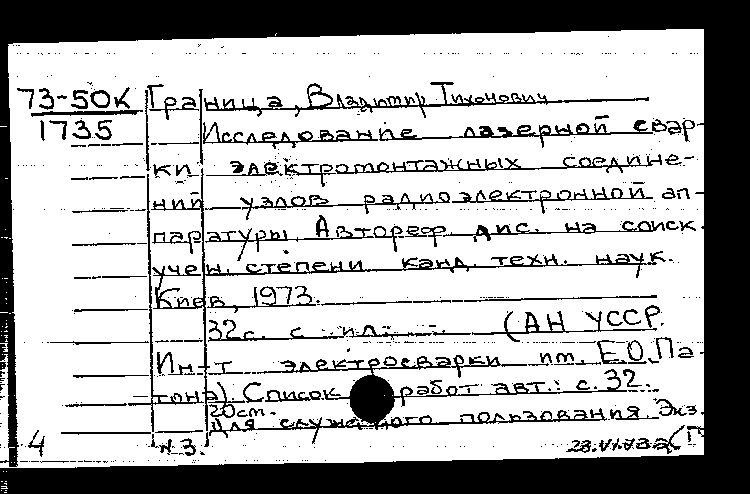 73-50К Граница, Владимир Тихонович
1735 Исследование лазерной свар-
ки электромонтажных соедине-
ний узлов радиоэлектронной ап-
паратуры. Автореф. дис. на соиск.
учен. степени канд. техн. наук.
Киев, 1973.
32с. с ил. (АН УССР.
Ин-т электросварки им. Е.О. Па-
тона). Список работ авт.: с. 32.
20см.
Для служебного пользования. Экз.
4 № 3.